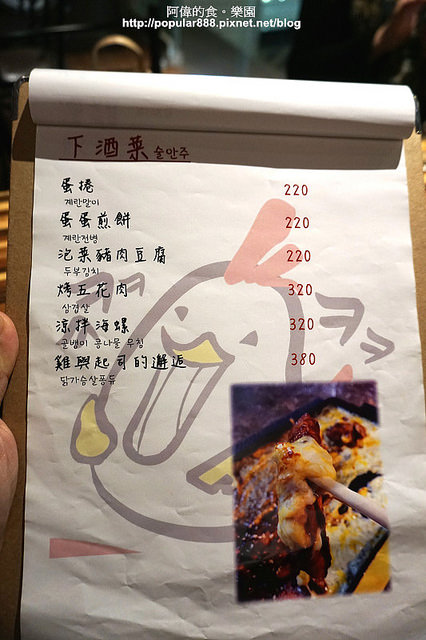 阿偉的食。樂園
http://popular888.pixnet.net/blog
下酒菜 술안주
蛋捲 220
계란말이
蛋蛋煎餅 220
계란전병
泡菜豬肉豆腐 220
두부김치
烤五花肉 320
삼겹살
涼拌海螺 320
골뱅이 콩나물 무침
雞與起司的邂逅 380
닭가슴살퐁듀